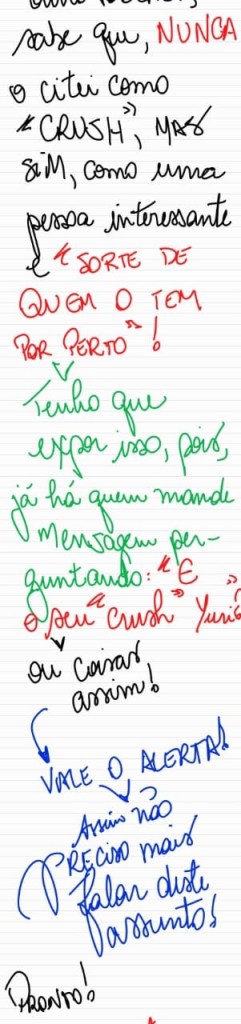 sabe que, NUNCA
o citei como
"CRUSH", MAS
SIM, como uma
pessoa interessante
e "SORTE DE
QUEM O TEM
POR PERTO"!
Tenho que
expor isso, pois,
já há quem mande
mensagem per-
guntando: "E
o seu "crush" Yuri?"
ou coisas
assim!
VALE O ALERTA!
Assim não
PRECISO mais
falar deste
assunto!
PRONTO!